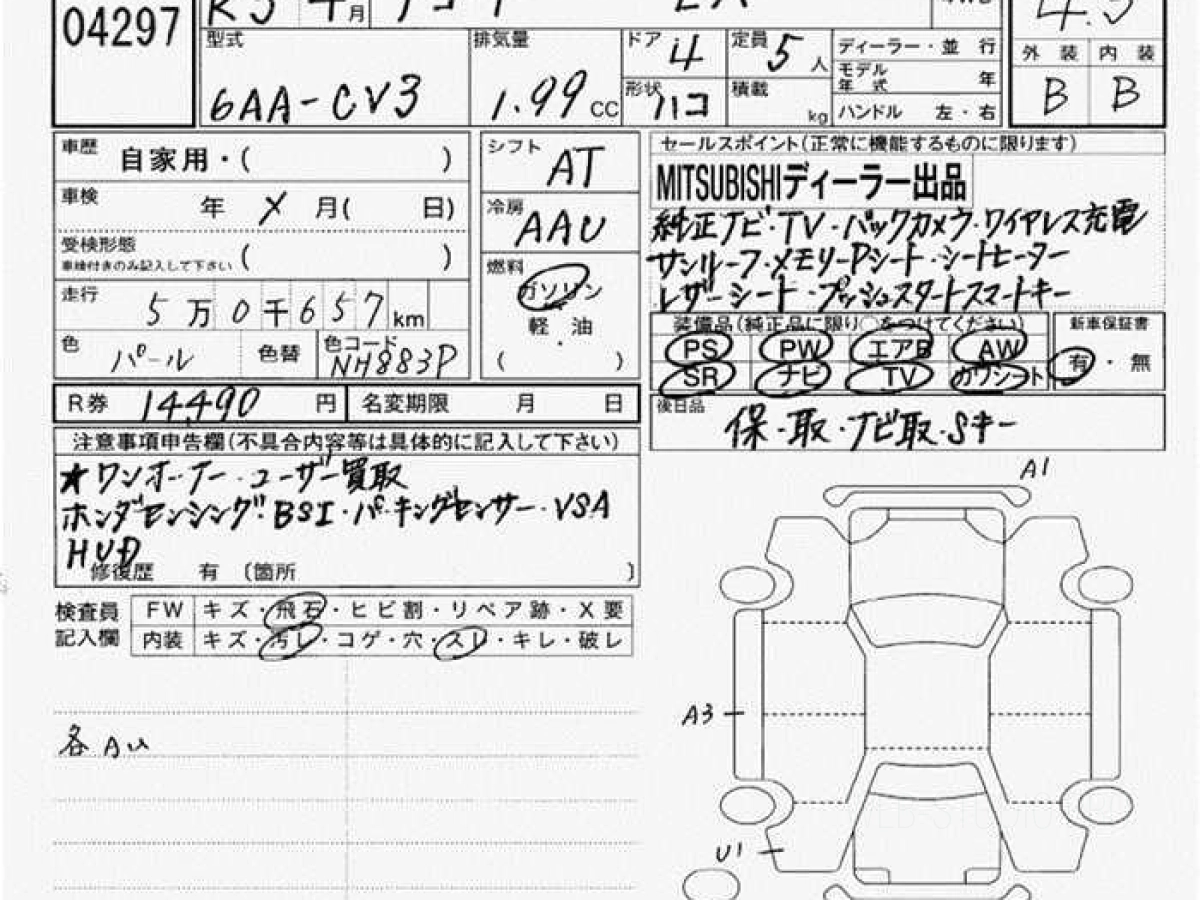 04297
R3 年 4 月 アコード EX 4.5
型式 排気量 ドア 4 定員 5 人 ディーラー・並 行 外 装 内 装
モデル年 式 年
6AA-CV3 1.99 CC 形状 ハコ 積載 kg ハンドル 左・右 B B
車歴 自家用・( )
車検 年 X 月( 日)
受検形態
車検付きのみ記入して下さい ( )
走行 5 万 0 千 6 5 7 km
色 パール 色替 色コード NH883P
シフト AT
冷房 AAC
燃料 ガソリン
軽 油
( ・ )
セールスポイント(正常に機能するものに限ります)
MITSUBISHIディーラー出品
純正ナビ・TV・バックカメラ・ワイヤレス充電
サンルーフ・メモリーPシート・シートヒーター
レザーシート・プッシュスタートスマートキー
装備品(純正品に限り○をつけてください) 新車保証書
PS PW エアB AW 有 ・ 無
SR ナビ TV カワシート
R券 14,490 円 名変期限 月 日
後日品 保・取・ナビ取・Sキー
注意事項申告欄(不具合内容等は具体的に記入して下さい)
★ワンオーナー・ユーザー買取
ホンダセンシング・BSI・パーキングセンサー・VSA
HUD
修復歴 有 〔箇所 〕
検査員 FW キズ・飛石・ヒビ割・リペア跡・X要
記入欄 内装 キズ・汚レ・コゲ・穴・スレ・キレ・破レ
各 AU
A1
A3
U1